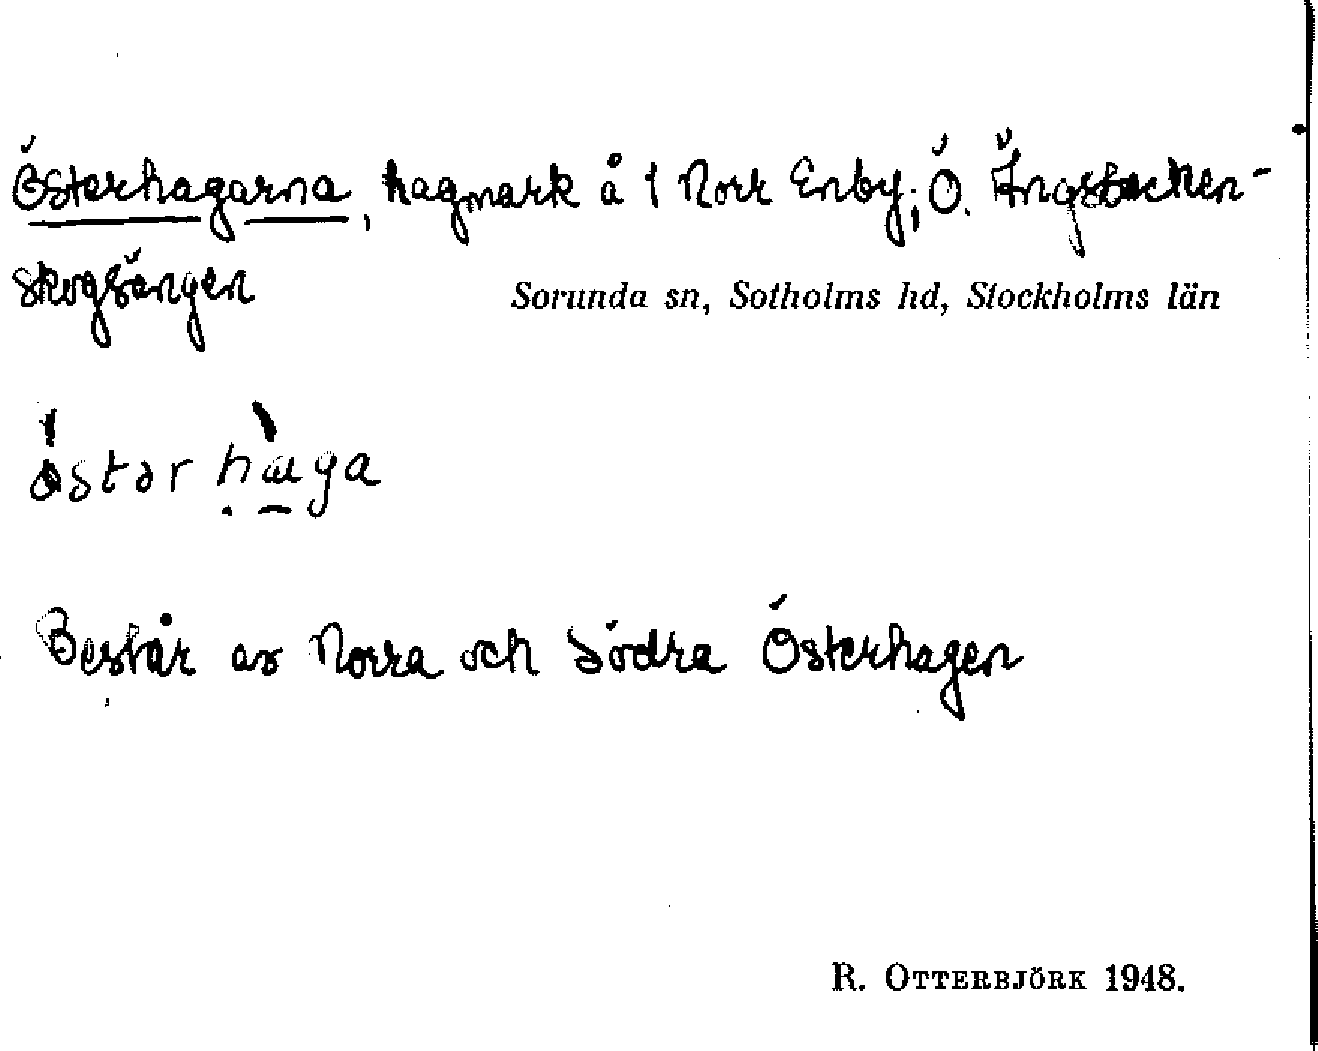 Österhagarna, hagmark å 1 Norr Enby; Ö. Ängsbacken-
skogsängen
Sorunda sn, Sotholms hd, Stockholms län
östər haga
Består av Norra och Södra Österhagen
R. OTTERBJÖRK 1948.